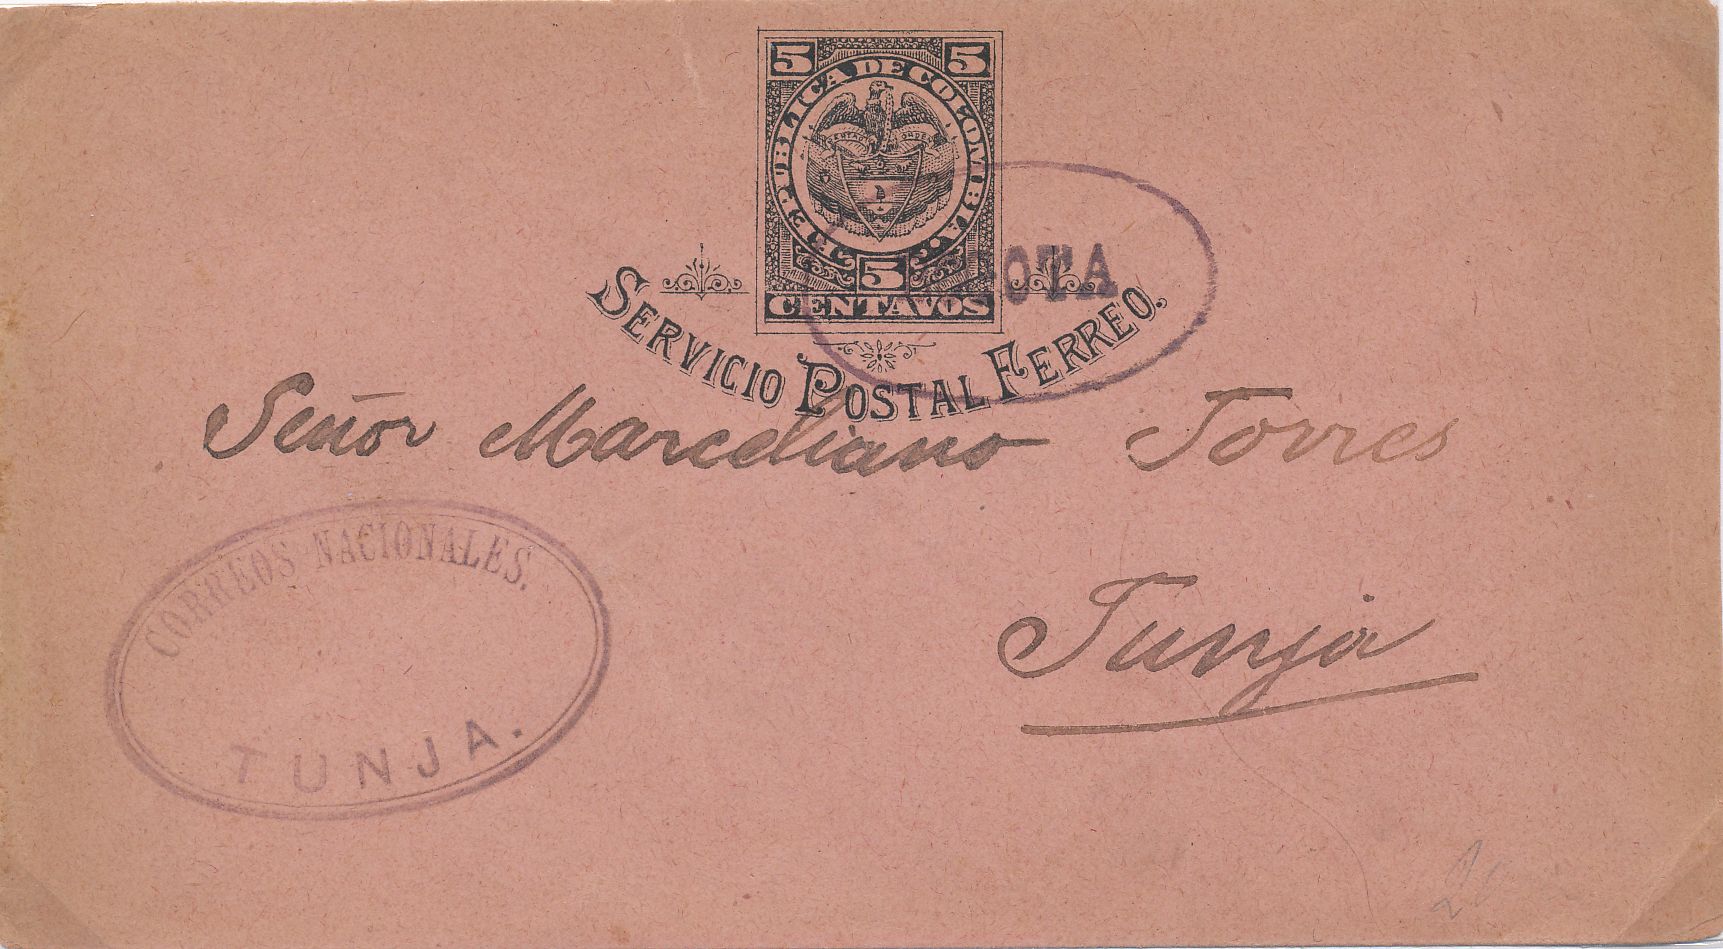 5 5
REPUBLICA DE COLOMBIA.
5
CENTAVOS
SERVICIO POSTAL FERREO.
Señor Marceliano Torres
CORREOS NACIONALES.
TUNJA.
Tunja